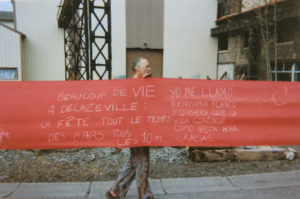 BEAUCOUP DE VIE
A DECAZEVILLE :
LA FÊTE.. TOUT LE TEMPS
DES BARS TOUS
LES 10m..
YO ME LLAMO
BENYAMIN BLANCO
Y QUISIERA QUE LA
VIDA CONTINUE
COMO HASTA AORA
GRACIAS